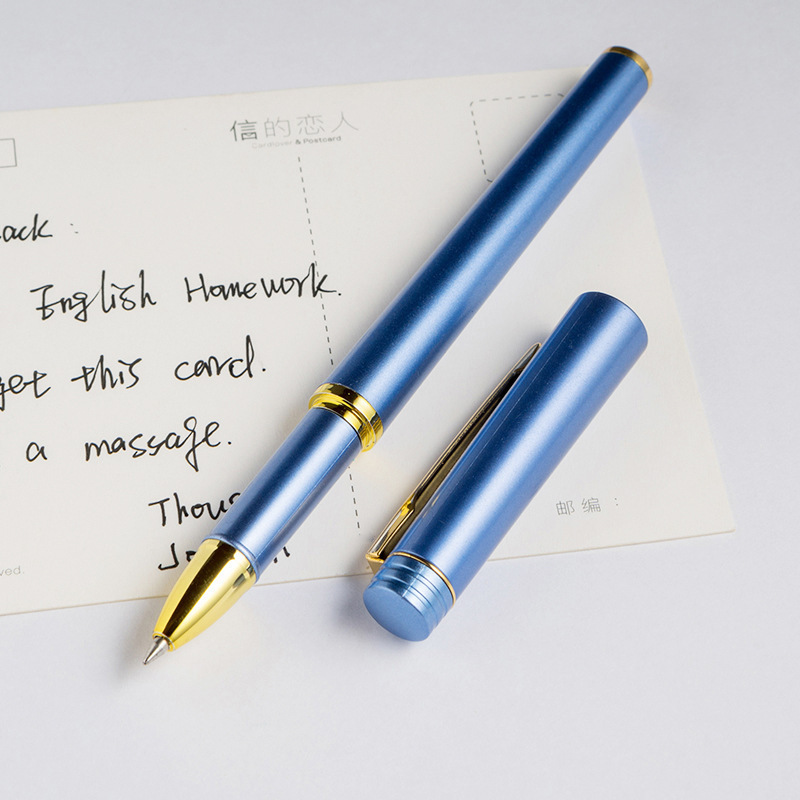 信的恋人
& Postcard
ack :
English Homework.
get this card.
a massage.
Thous
邮编：
ved.